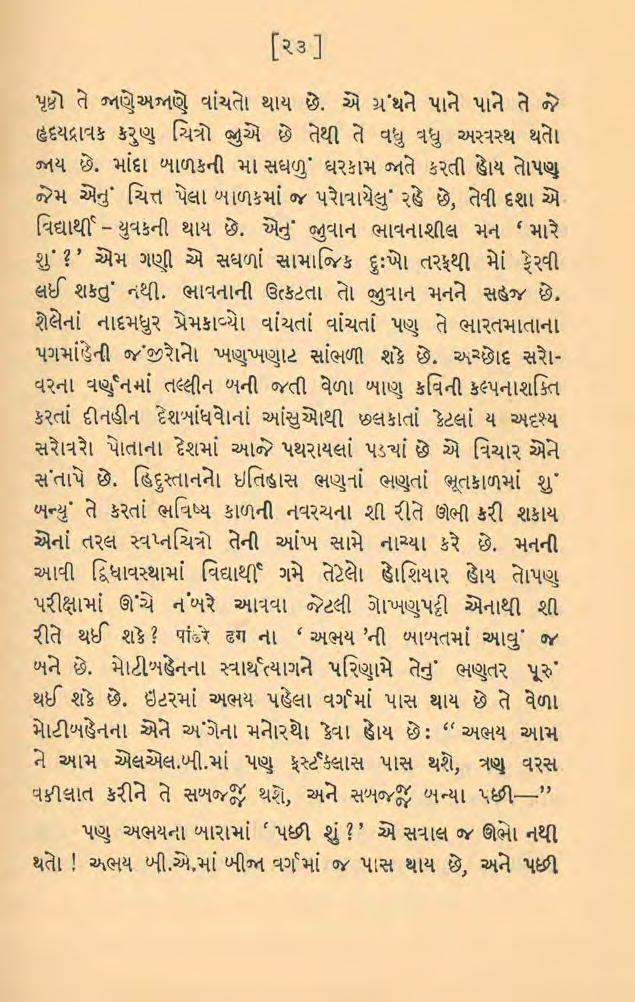 [૨૩]
પૃષ્ઠો તે જાણેઅજાણે વાંચતો થાય છે. એ ગ્રંથને પાને પાને તે જે
હૃદયદ્રાવક કરુણ ચિત્રો જુએ છે તેથી તે વધુ વધુ અસ્વસ્થ થતો
જાય છે. માંદા બાળકની મા સઘળું ઘરકામ જાતે કરતી હોય તોપણ
જેમ એનું ચિત્ત પેલા બાળકમાં જ પરોવાયેલું રહે છે, તેવી દશા એ
વિદ્યાર્થી – યુવકની થાય છે. એનું જુવાન ભાવનાશીલ મન ‘ મારે
શું ? ’ એમ ગણી એ સઘળાં સામાજિક દુઃખો તરફથી મોં ફેરવી
લઈ શકતું નથી. ભાવનાની ઉત્કટતા તો જુવાન મનને સહજ છે.
શેલેનાં નાદમધુર પ્રેમકાવ્યો વાંચતાં વાંચતાં પણ તે ભારતમાતાના
પગમાંહેની જંજીરોનો ખણખણાટ સાંભળી શકે છે. અચ્છોદ સરો-
વરના વર્ણનમાં તલ્લીન બની જતી વેળા બાણ કવિની કલ્પનાશક્તિ
કરતાં દીનહીન દેશબાંધવોનાં આંસુઓથી છલકાતાં કેટલાં ય અદૃશ્ય
સરોવરો પોતાના દેશમાં આજે પથરાયલાં પડ્યાં છે એ વિચાર એને
સંતાપે છે. હિંદુસ્તાનનો ઇતિહાસ ભણતાં ભણતાં ભૂતકાળમાં શું
બન્યું તે કરતાં ભવિષ્ય કાળની નવરચના શી રીતે ઊભી કરી શકાય
એનાં તરલ સ્વપ્નચિત્રો તેની આંખ સામે નાચ્યા કરે છે. મનની
આવી દ્વિધાવસ્થામાં વિદ્યાર્થી ગમે તેટલો હોશિયાર હોય તોપણ
પરીક્ષામાં ઊંચે નંબરે આવવા જેટલી ગોખણપટ્ટી એનાથી શી
રીતે થઈ શકે? पांढरे ढग ના ‘ અભય ’ની બાબતમાં આવું જ
બને છે. મોટીબહેનના સ્વાર્થત્યાગને પરિણામે તેનું ભણતર પૂરું
થઈ શકે છે. ઇંટરમાં અભય પહેલા વર્ગમાં પાસ થાય છે તે વેળા
મોટીબહેનના એને અંગેના મનોરથો કેવા હોય છે: “ અભય આમ
ને આમ એલએલ.બી.માં પણ ફર્સ્ટક્લાસ પાસ થશે, ત્રણ વરસ
વકીલાત કરીને તે સબજજ્જ થશે, અને સબજજ્જ બન્યા પછી—”
પણ અભયના બારામાં ‘ પછી શું ? ’ એ સવાલ જ ઊભો નથી
થતો ! અભય બી.એ.માં બીજા વર્ગમાં જ પાસ થાય છે, અને પછી